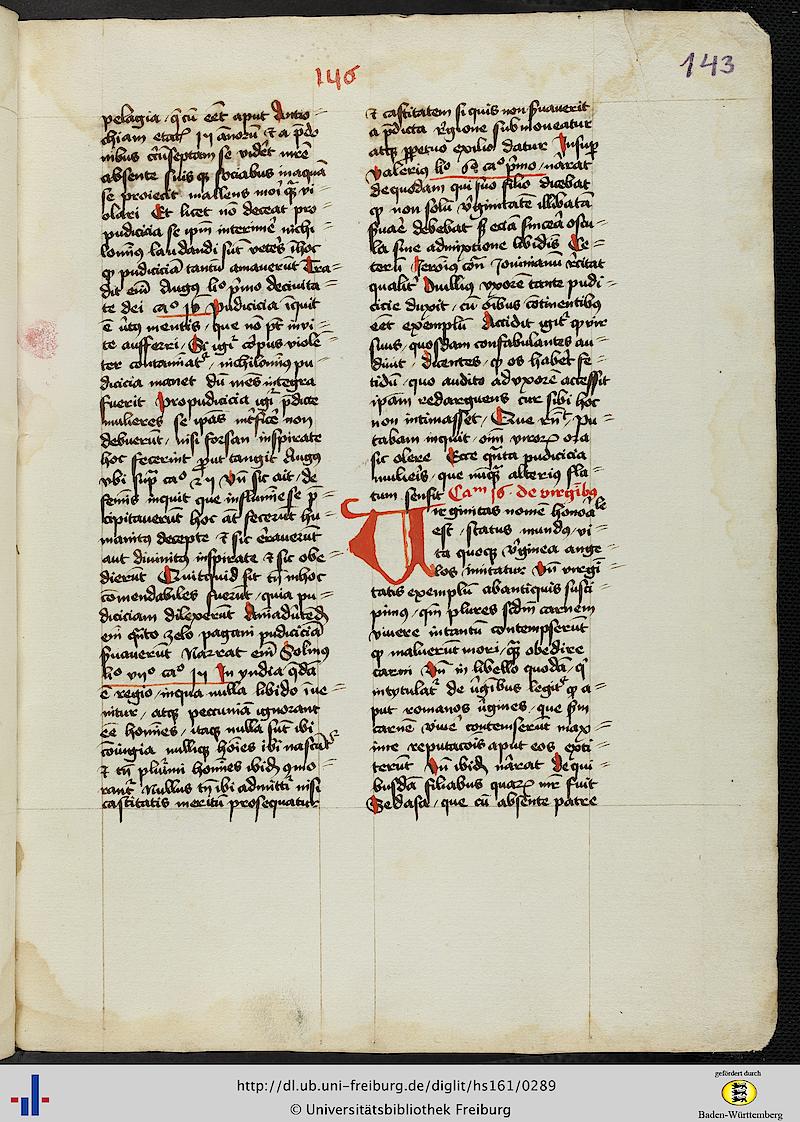 146
143
pelagia q̄ cū eēt aput Antio
chiam etatꝭ annorū ⁊ a
nibus se videt
absente suis qꝫ sociabus in aquā
se proiecit mallens moī qͣ vi
olari Et licet nō deceat pro
pudicicia se ipm̄ interimē nichi
lominꝰ laudandi sūt veteres ī hoc
ꝙ pudiciciā tantū amauerūt Tra
dit em̄ Augus li° pͥmo de ciuita
te dei ca° Pudicicia īquit
ē v̓tꝰ mentis que nō pt̄ īvi
te aufferri Et igͥ corpus viole
ter contaminatᷣ nichilominꝰ pu
dicicia manet dū mēs integra
fuerit Pro pudicicia igͥ pd̄icte
mulieres se ipās int̓ficē non
debuerūt nisi forsan inspirate
hoc fecerint ꝓut tangit Augꝰ
vbi supͣ ca° Vn̄ sic ait de
femīs inquit que in flumīe se p̄
cipitauerūt hoc āt fecerūt hu
manitꝰ decepte ⁊ sic erͣauerūt
aut diuinitꝰ inspirate ⁊ sic obe
dierūt Quitquid sit tn̄ in hoc
comendabiles fuerūt quia pu
diciciam dilexerūt Animaduted
em̄ qͣnto zelo pagani pudiciciā
s̓uauerūt Narrat em̄ Solinꝰ
li° vii° ca° In yndia qͣdā
ē regio in qua nulla libido īue
nitur atqꝫ pecuniā ignorant
eē homīes itaqꝫ nulla sūt ibi
cōiugia nulliqꝫ hoīes ibi nascūtᷣ
⁊ tn̄ plurimi homīes ibidꝫ
rantᷣ Nullus tn̄ ibi admittiᷣ nisi
castitatis meritū prosequatur
⁊ castitatem si quis non s̓uauerit
a pd̄icta regione submoueatur
atqꝫ ꝑpetuo exilio datur Insuꝑ
valeriꝰ li° 6° ca° pͥmo nārat
de quodam qui suo filio dicebat
ꝙ non solū v̓ginitate illibata
s̓uaē debebat sꝫ eciā sincera oscu
la sine admixtione libidīs Ce
terū Jeronīꝰ con̄ Jouinianū recitat
qualit̓ Duilliꝰ vxorē tante pudi
cicie duxit cū oībus cōtinentibꝰ
eēt exemplū Accidit igitᷣ ꝙ vir
suus quosdam confabulantes au
diuit dicentes ꝙ os habet fe
tidū quo audito ad vxorē accessit
ipsam redarguens cur sibi hoc
non intimasset Que rn̄t Pu
tabam inquit oīm virorꝫ ora
sic olere Ecce qͣnta pudicicia
mulieris que nūqͣ alterius fla
tum sensit Cam 16 de virginibꝰ
Virginitas nomē honorabile
est status mundus vi
ta quoqꝫ v̓ginea ange
los īmitatur Vn̄ virgi
tatis exemplū ab antiquis susci
pimꝰ qm̄ plures scd̄m carnem
viuere intantū contempserūt
ꝙ maluerūt mori qͣ obedire
carni Vn̄ in libello quodā qͥ
intytulatᷣ de v̓gibus legitᷣ ꝙ a
put romanos v̓gines que sm̄
carnē viuē contemserūt max
ime reputacōis aput eos exti
terūt Vn̄ ibidꝫ nārat de qui
busdā filiabus quarꝫ mr̄ fuit
Sedasa que cū absente patre
http://dl.ub.uni-freiburg.de/diglit/hs161/0289
© Universitätsbibliothek Freiburg
gefördert durch
Baden-Württemberg